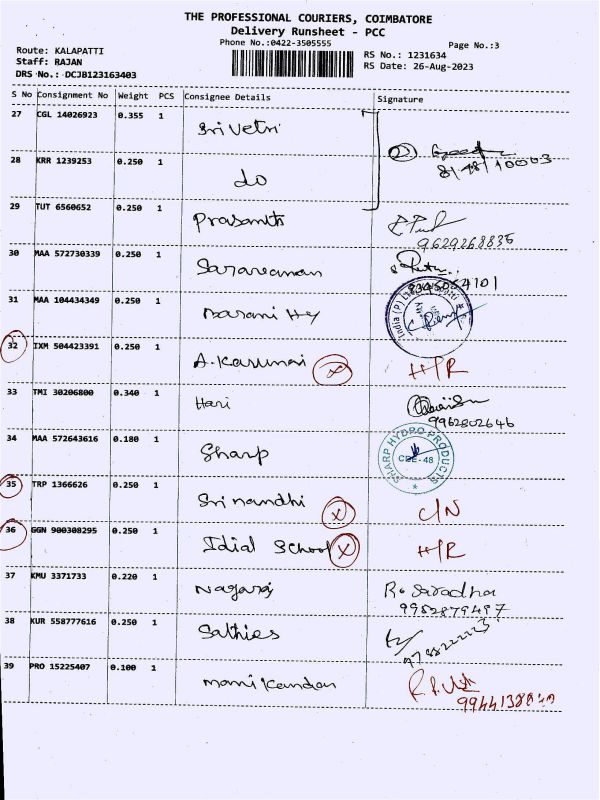 THE PROFESSIONAL COURIERS, COIMBATORE
Delivery Runsheet - PCC
Phone No.:0422-3505555
Page No.:3
Route: KALAPATTI
Staff: RAJAN
DRS No.: DCJB123163403
RS No.: 1231634
RS Date: 26-Aug-2023
S No Consignment No Weight PCS Consignee Details Signature
27 CGL 14026923 0.355 1 Sri Vetri
28 KRR 1239253 0.250 1 do
29 TUT 6560652 0.250 1 Prasanth
9629268836
30 MAA 572730339 0.250 1
31 MAA 104434349 0.250 1
India (P) L
32 IXM 504423391 0.250 1 A. Karunai X H/R
33 TMI 30206800 0.340 1 Hari
9962802646
34 MAA 572643616 0.180 1 Sharp SHARP HYDRO PRODUCTS
CBE-48
35 TRP 1366626 0.250 1 Sri nandhi X C/N
36 GGN 900308295 0.250 1 Idial School X H/R
37 KMU 3371733 0.220 1 Nagaraj
9952879497
38 KUR 558777616 0.250 1 Sathies
39 PRO 15225407 0.100 1 Mani Kandan